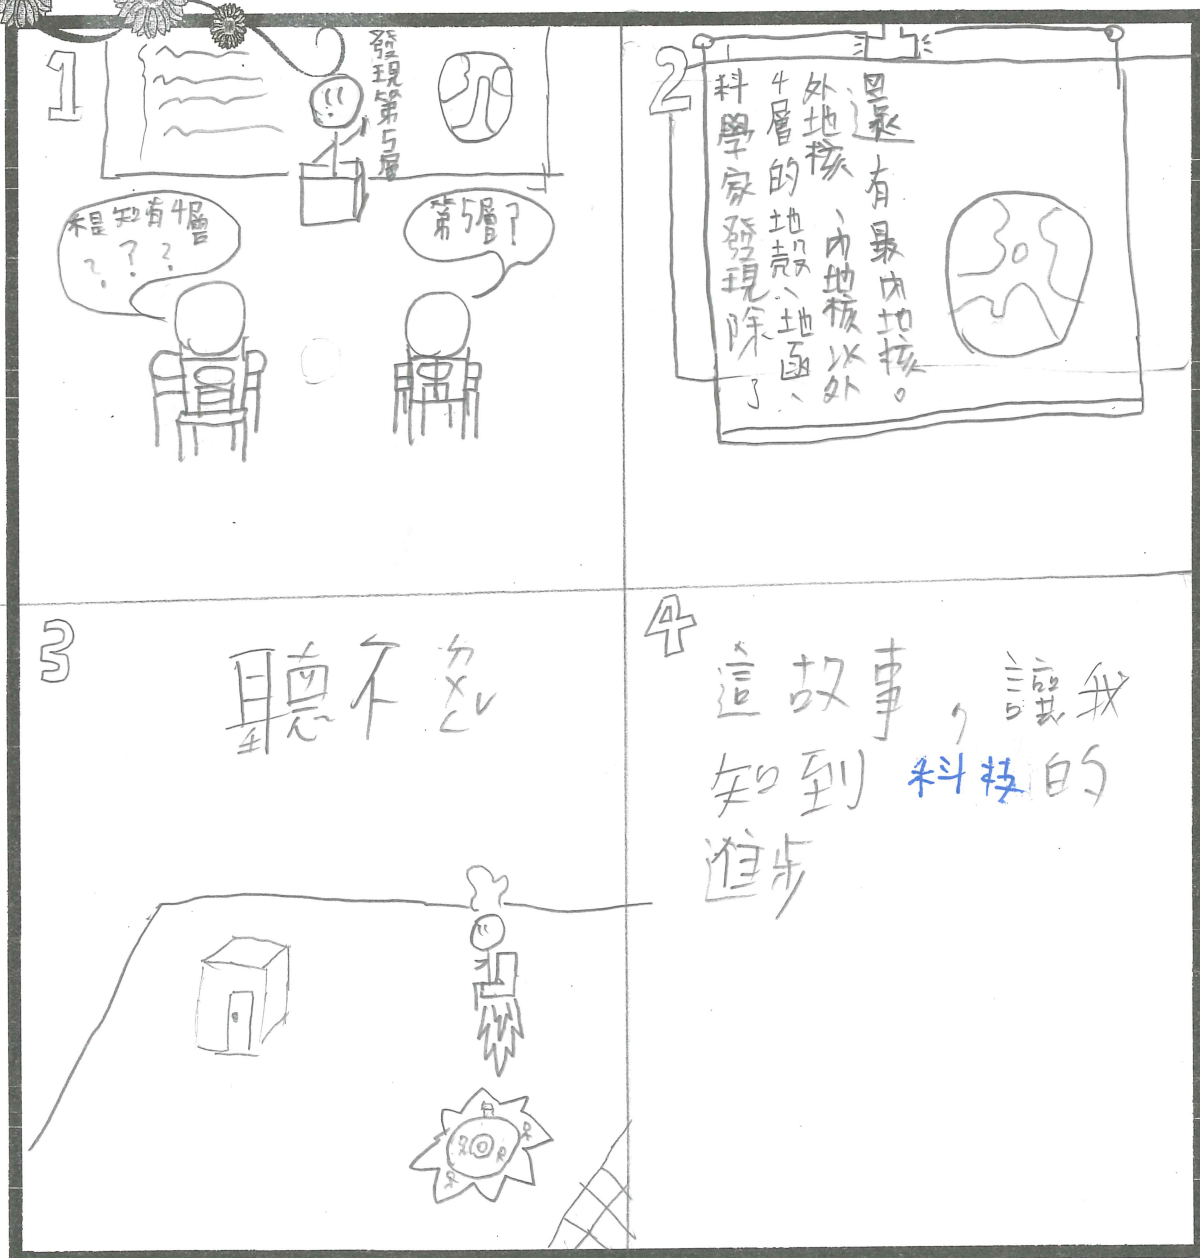 1
發現第5層
不是知有4層
? ? ?
第5層?
2
科學家發現除了
4層的地殼、地函、
外地核、內地核以外
還有最內地核。
3
聽不ㄉㄨㄥˇ
4
這故事,讓我
知到科技的
進步